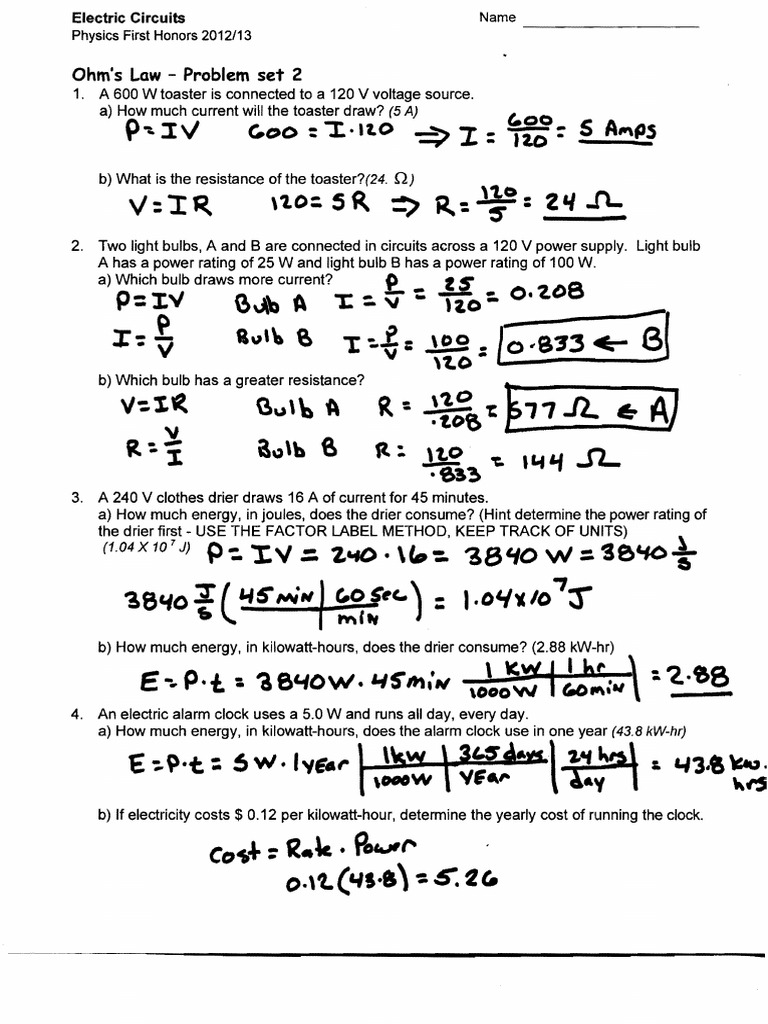 Electric Circuits Name
Physics First Honors 2012/13
Ohm's Law – Problem set 2
1. A 600 W toaster is connected to a 120 V voltage source.
a) How much current will the toaster draw? (5 A)
P=IV 600 = I·120 ⇒ I = 600/120 = 5 Amps
b) What is the resistance of the toaster?(24. Ω)
V=IR 120=5R ⇒ R = 120/5 = 24 Ω
2. Two light bulbs, A and B are connected in circuits across a 120 V power supply. Light bulb
A has a power rating of 25 W and light bulb B has a power rating of 100 W.
a) Which bulb draws more current?
P=IV Bulb A I = P/V = 25/120 = 0.208
I=P/V Bulb B I=P/V = 100/120 = 0.833 ← B
b) Which bulb has a greater resistance?
V=IR Bulb A R = 120/.208 = 577 Ω ← A
R=V/I Bulb B R= 120/.833 = 144 Ω
3. A 240 V clothes drier draws 16 A of current for 45 minutes.
a) How much energy, in joules, does the drier consume? (Hint determine the power rating of
the drier first - USE THE FACTOR LABEL METHOD, KEEP TRACK OF UNITS)
(1.04 X 10⁷ J) P=IV=240·16=3840W=3840 J/S
3840 J/S (45 min | 60 sec / min) = 1.04x10⁷J
b) How much energy, in kilowatt-hours, does the drier consume? (2.88 kW-hr)
E=P·t = 3840W·45min 1 KW/1000W | 1 hr/60min = 2.88
4. An electric alarm clock uses a 5.0 W and runs all day, every day.
a) How much energy, in kilowatt-hours, does the alarm clock use in one year (43.8 kW-hr)
E=P·t = 5W·1yEar | 1kw/1000W | 365 days/YEAr | 24 hrs/day | = 43.8 kw·
hrs
b) If electricity costs $ 0.12 per kilowatt-hour, determine the yearly cost of running the clock.
Cost = Rate · Power
0.12(43.8) = 5.26